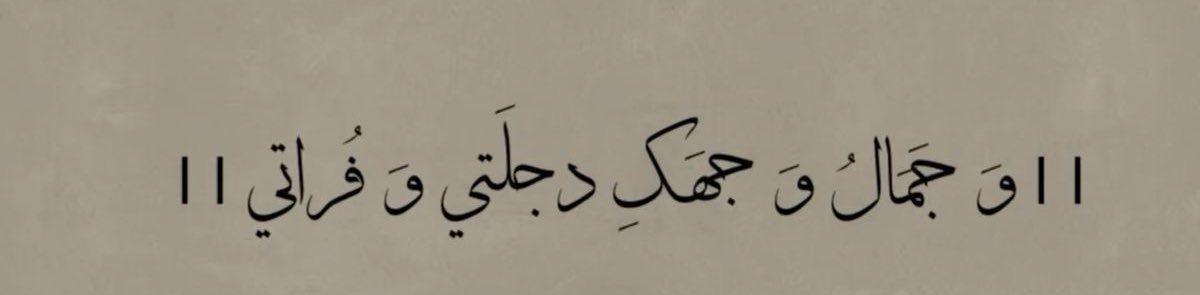 || وَ جَمَالُ وَ جهَكِ دجلَتي وَ فُراتي ||